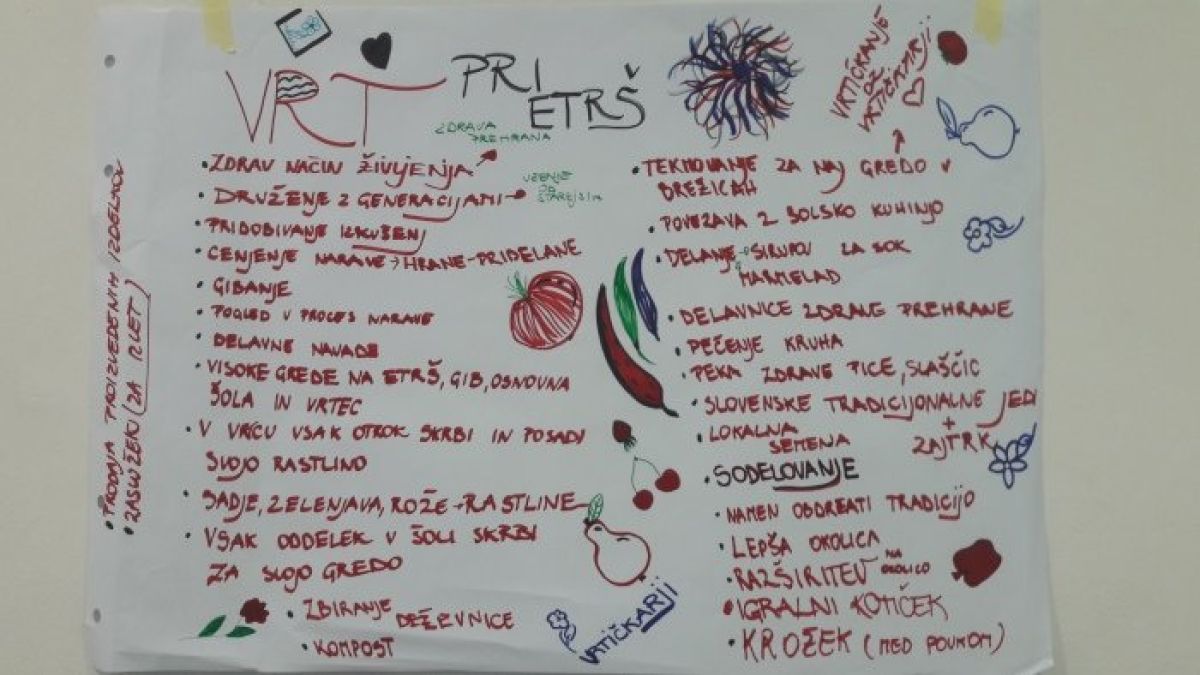 VRT PRI ETRŠ
ZDRAVA PREHRANA
• ZDRAV NAČIN ŽIVLJENJA
• DRUŽENJE Z GENERACIJAMI
UČENJE OD STAREJŠIH
• PRIDOBIVANJE IZKUŠENJ
• CENJENJE NARAVE → HRANE - PRIDELANE
• GIBANJE
• POGLED V PROCES NARAVE
• DELAVNE NAVADE
• VISOKE GREDE NA ETRŠ, GIB, OSNOVNA
ŠOLA IN VRTEC
• V VRTCU VSAK OTROK SKRBI IN POSADI
SVOJO RASTLINO
• SADJE, ZELENJAVA, ROŽE → RASTLINE
• VSAK ODDELEK V ŠOLI SKRBI
ZA SVOJO GREDO
• ZBIRANJE DEŽEVNICE
• KOMPOST
VRTIČKARJI
• PRODAJA PROIZVEDENIH IZDELKOV
• ZASLUŽEK (ZA IZLET)
VRTIČKANJE
OZ.
VRTIČKARJI
• TEKMOVANJE ZA NAJ GREDO V
BREŽICAH
• POVEZAVA Z ŠOLSKO KUHINJO
• DELANJE → SIRUPOV ZA SOK
MARMELAD
• DELAVNICE ZDRAVE PREHRANE
• PEČENJE KRUHA
• PEKA ZDRAVE PICE, SLAŠČIC
• SLOVENSKE TRADICIJONALNE JEDI
+
ZAJTRK
• LOKALNA
SEMENA
• SODELOVANJE
• NAMEN OBDRŽATI TRADICIJO
• LEPŠA OKOLICA
• RAZŠIRITEV NA OKOLICO
• IGRALNI KOTIČEK
• KROŽEK (MED POUKOM)